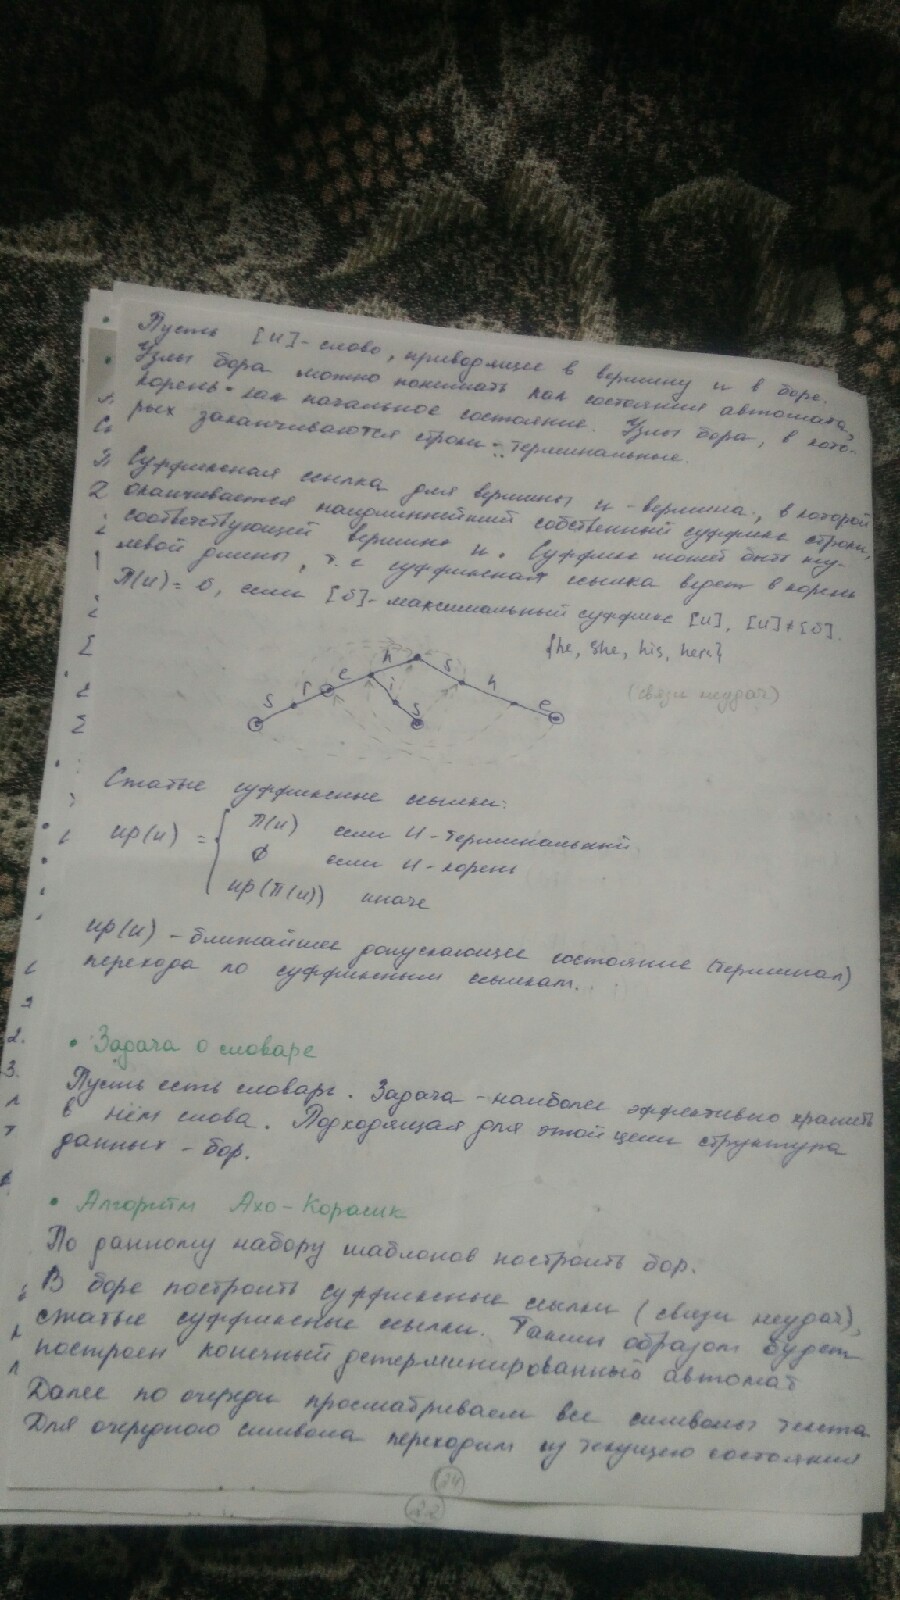 Пусть [u]-слово, приводящее в вершину u в боре.
Узлы бора можно понимать как состояния автомата,
корень - как начальное состояние. Узлы бора, в кото-
рых заканчиваются строки - терминальные.
Суффиксная ссылка для вершины u - вершина, в которой
оканчивается наидлиннейший собственный суффикс строки,
соответствующей вершине u. Суффикс может быть ну-
левой длины, т. е суффиксная ссылка ведет в корень
π(u) = δ, если [δ]-максимальный суффикс [u], [u]≠[δ].
{he, she, his, hers}
(связи неудач)
s r e h s h e
i s
Сжатые суффиксные ссылки:
up(u) = { π(u) если u-терминальный
∅ если u-корень
up(π(u)) иначе
up(u) - ближайшее допускающее состояние (терминал)
перехода по суффиксным ссылкам.
• Задача о словаре
Пусть есть словарь. Задача - наиболее эффективно хранить
в нём слова. Подходящая для этой цели структура
данных - бор.
• Алгоритм Ахо-Корасик
По данному набору шаблонов построить бор.
В боре построить суффиксные ссылки (связи неудач),
сжатые суффиксные ссылки. Таким образом будет
построен конечный детерминированный автомат
Далее по очереди просматриваем все символы текста
Для очередного символа переходим из текущего состояния
24
22